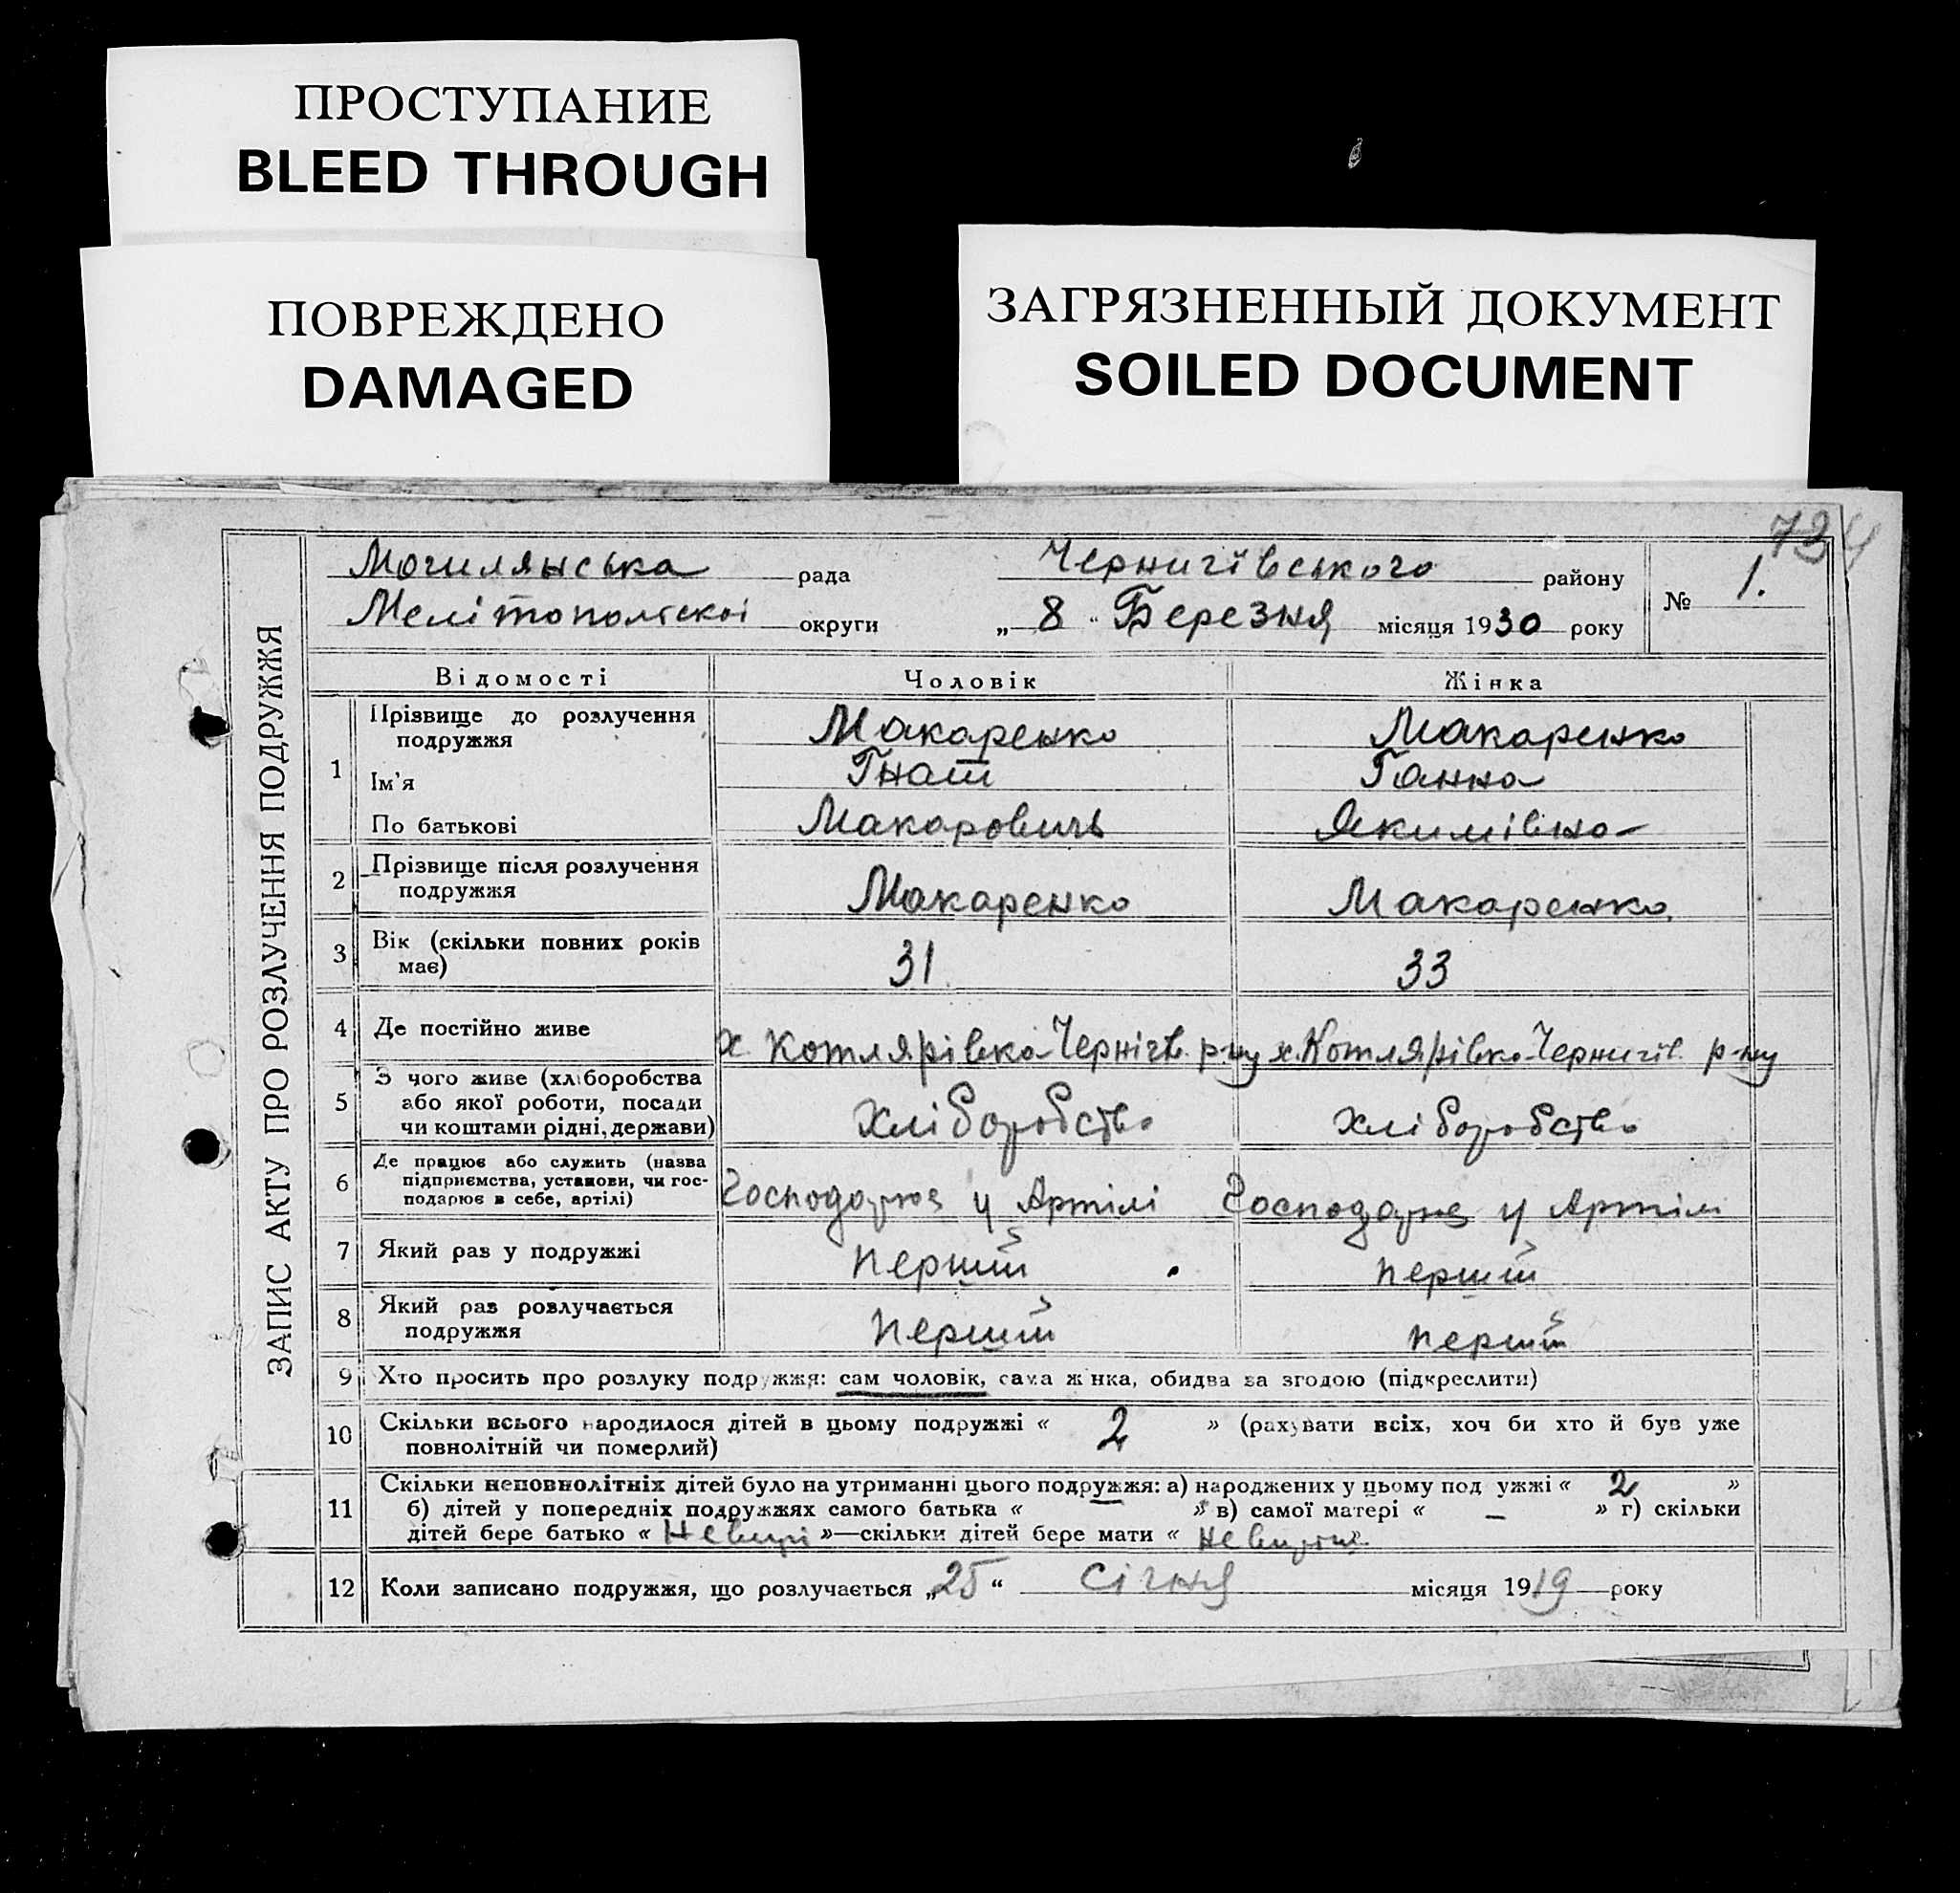 ПРОСТУПАНИЕ
BLEED THROUGH
ПОВРЕЖДЕНО
DAMAGED
ЗАГРЯЗНЕННЫЙ ДОКУМЕНТ
SOILED DOCUMENT
ЗАПИС АКТУ ПРО РОЗЛУЧЕННЯ ПОДРУЖЖЯ
Могилянська рада Чернигівського району № 1.
Мелітопольскоі округи „ 8 “ Березня місяця 1930 року
Відомості Чоловік Жінка
1 Прізвище до розлучення подружжя Макаренко Макаренко
Ім'я Гнат Ганна
По батькові Макарович Якимівна
2 Прізвище після розлучення подружжя Макаренко Макаренко
3 Вік (скільки повних років має) 31 33
4 Де постійно живе х Котлярівка Чернігів. р-ну х. Котлярівка Чернигів. р-ну
5 З чого живе (хліборобства або якої роботи, посади чи коштами рідні, держави) Хліборобство Хліборобство
6 Де працює або служить (назва підприємства, установи, чи господарює в себе, артілі) Господарює у Артілі Господарює у Артілі
7 Який раз у подружжі перший перший
8 Який раз розлучається подружжя перший перший
9 Хто просить про розлуку подружжя: сам чоловік, сама жінка, обидва за згодою (підкреслити)
10 Скільки всього народилося дітей в цьому подружжі « 2 » (рахувати всіх, хоч би хто й був уже
повнолітній чи померлий)
11 Скільки неповнолітніх дітей було на утриманні цього подружжя: а) народжених у цьому подружжі « 2 »
б) дітей у попередніх подружжях самого батька « » в) самої матері « – » г) скільки
дітей бере батько « » — скільки дітей бере мати « »
12 Коли записано подружжя, що розлучається „25“ січня місяця 1919 року